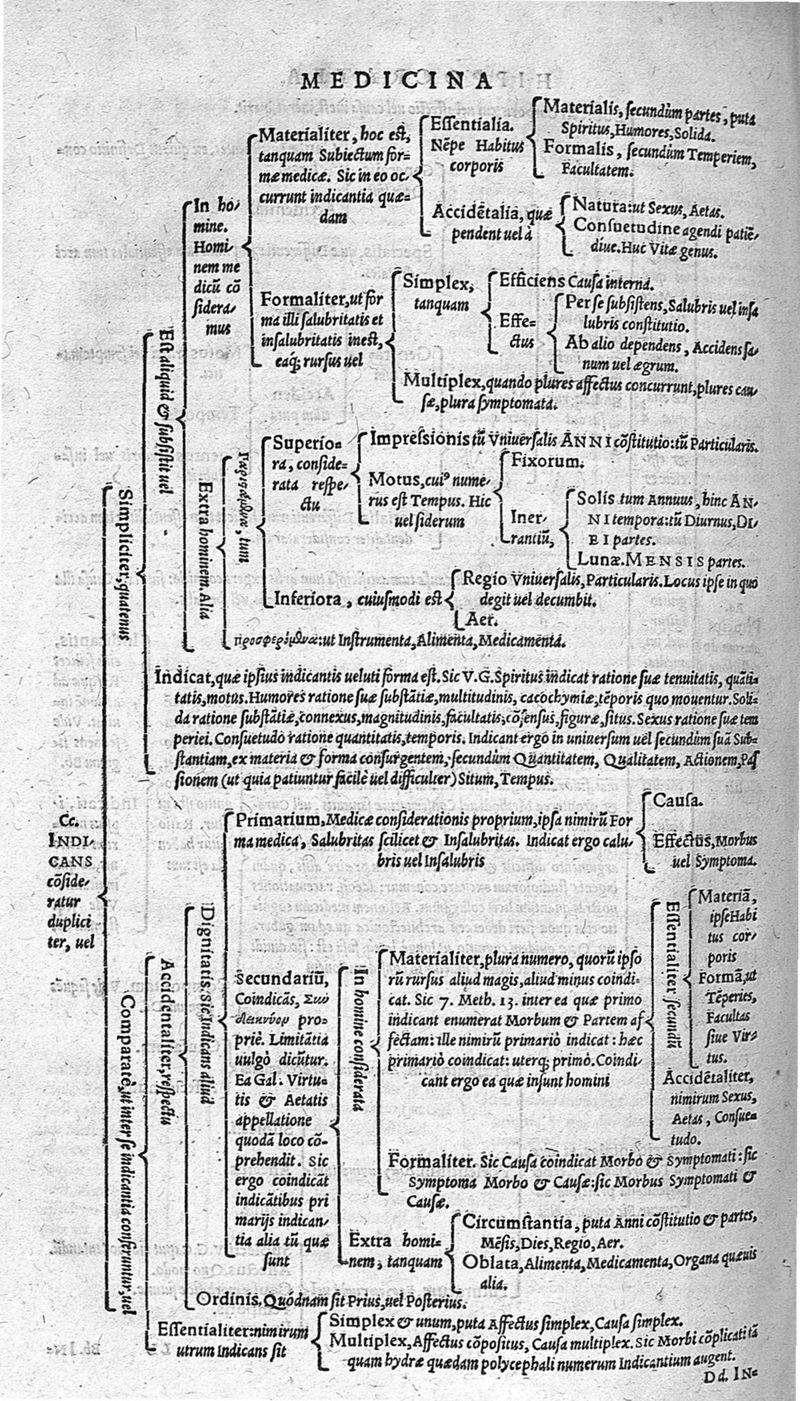 MEDICINA
Cc.
INDI-
CANS
cōside-
ratur
duplici
ter, uel
Simpliciter, quatenus
Est aliquid & subsistit uel
In ho-
mine.
Homi-
nem me
dicū cō
sidera-
mus
Materialiter, hoc est,
tanquam Subiectum for-
mæ medicæ. Sic in eo oc-
currunt indicantia quæ-
dam
Essentialia.
Nēpe Habitus
corporis
Materialis, secundùm partes, puta
Spiritus, Humores, Solida.
Formalis, secundùm Temperiem,
Facultatem.
Accidētalia, quæ
pendent uel à
Natura: ut Sexus, Aetas.
Consuetudine agendi patiē-
diue. Huc Vitæ genus.
Formaliter, ut for
ma illi salubritatis et
insalubritatis inest,
eaq́; rursus uel
Simplex,
tanquam
Efficiens Causa interna.
Effe-
ctus
Per se subsistens, Salubris uel insa
lubris constitutio.
Ab alio dependens, Accidens sa-
num uel ægrum.
Multiplex, quando plures affectus concurrunt, plures cau-
sæ, plura symptomata.
Extra hominem. Alia
tum
Superio-
ra, conside-
rata respe-
ctu
Impressionis tū Vniuersalis ANNI cōstitutio: tū Particularis.
Motus, cuiꝰ nume-
rus est Tempus. Hic
uel siderum
Fixorum.
Iner-
rantiū,
Solis tum Annuus, hinc AN-
NI tempora: tū Diurnus, DI-
EI partes.
Lunæ. MENSIS partes.
Inferiora, cuiusmodi est
Regio Vniuersalis, Particularis. Locus ipse in quo
degit uel decumbit.
Aer.
προσφερόμενα: ut Instrumenta, Alimenta, Medicamenta.
Indicat, quæ ipsius indicantis ueluti forma est. Sic V. G. Spiritus indicat ratione suæ tenuitatis, quāti-
tatis, motus. Humores ratione suæ substātiæ, multitudinis, cacochymiæ, tēporis quo mouentur. Soli-
da ratione substātiæ, connexus, magnitudinis, facultatis, cōsensus, figuræ, situs. Sexus ratione suæ tem
periei. Consuetudo ratione quantitatis, temporis. Indicant ergo in uniuersum uel secundùm suā Sub-
stantiam, ex materia & forma consurgentem, secundùm Quantitatem, Qualitatem, Actionem, Pas
sionem (ut quia patiuntur facilè uel difficulter) Situm, Tempus.
Comparatè, ut inter se indicantia conferuntur, uel
Accidentaliter, respectu
Dignitatis. Sic Indicans aliud
Primarium, Medicæ considerationis proprium, ipsa nimirū For
ma medica, Salubritas scilicet & Insalubritas. Indicat ergo calu-
bris uel Insalubris
Causa.
Effectus, Morbus
uel Symptoma.
Secundariū,
Coindicās, Συν
pro-
priè. Limitātia
uulgò dicūtur.
Ea Gal. Virtu-
tis & Aetatis
appellatione
quodā loco cō-
prehendit. Sic
ergo coindicāt
indicātibus pri
marijs indican-
tia alia tū quæ
sunt
In homine considerata
Materialiter, plura numero, quorū ipso
rū rursus aliud magis, aliud minus coindi-
cat. Sic 7. Meth. 13. inter ea quæ primo
indicant enumerat Morbum & Partem af
fectam: ille nimirū primariò indicat: hæc
primariò coindicat: uterq; primò. Coindi-
cant ergo ea quæ insunt homini
Essentialiter secundū
Materiā,
ipse Habi
tus cor-
poris
Formā, ut
Tēperies,
Facultas
siue Vir-
tus.
Accidētaliter,
nimirum Sexus,
Aetas, Consue-
tudo.
Formaliter. Sic Causa coindicat Morbo & Symptomati: sic
Symptoma Morbo & Causæ: sic Morbus Symptomati &
Causæ.
Extra homi-
nem, tanquam
Circumstantia, puta Anni cōstitutio & partes,
Mēsis, Dies, Regio, Aer.
Oblata, Alimenta, Medicamenta, Organa quæuis
alia.
Ordinis. Quódnam sit Prius, uel Posterius.
Essentialiter: nimirum
utrum Indicans sit
Simplex & unum, puta Affectus simplex, Causa simplex.
Multiplex, Affectus cōpositus, Causa multiplex. Sic Morbi cōplicati iā
quam hydræ quædam polycephali numerum Indicantium augent.
Dd. IN-